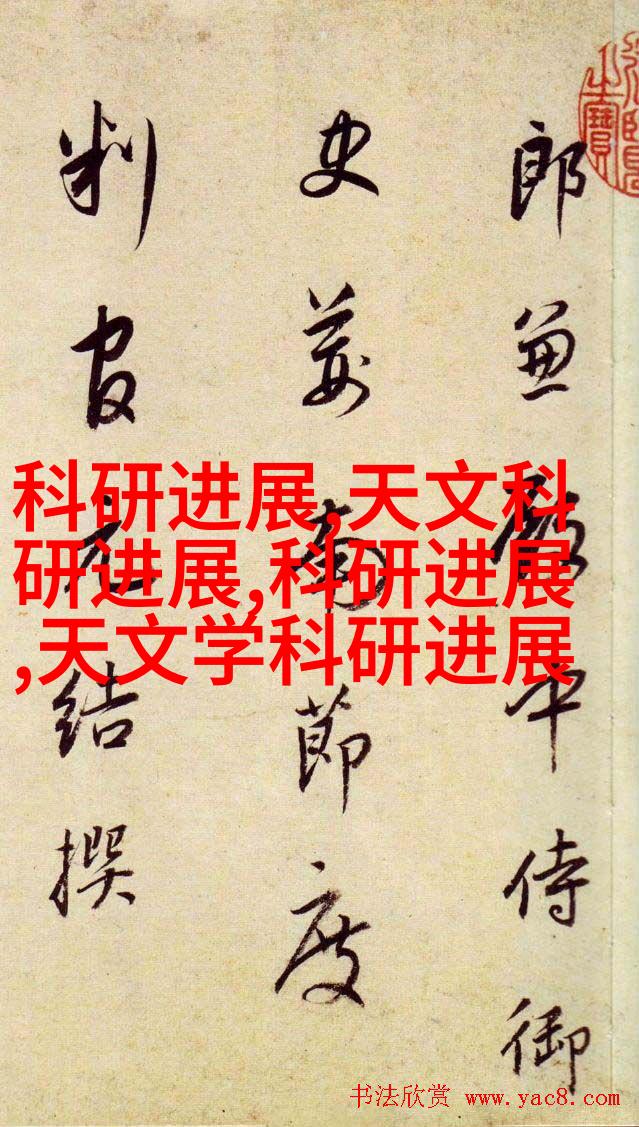 郎兼殿中侍御
史荆南節度
判官元結撰
科研进展,天文科
研进展,科研进展
,天文学科研进展
书法欣赏 www.yac8.com